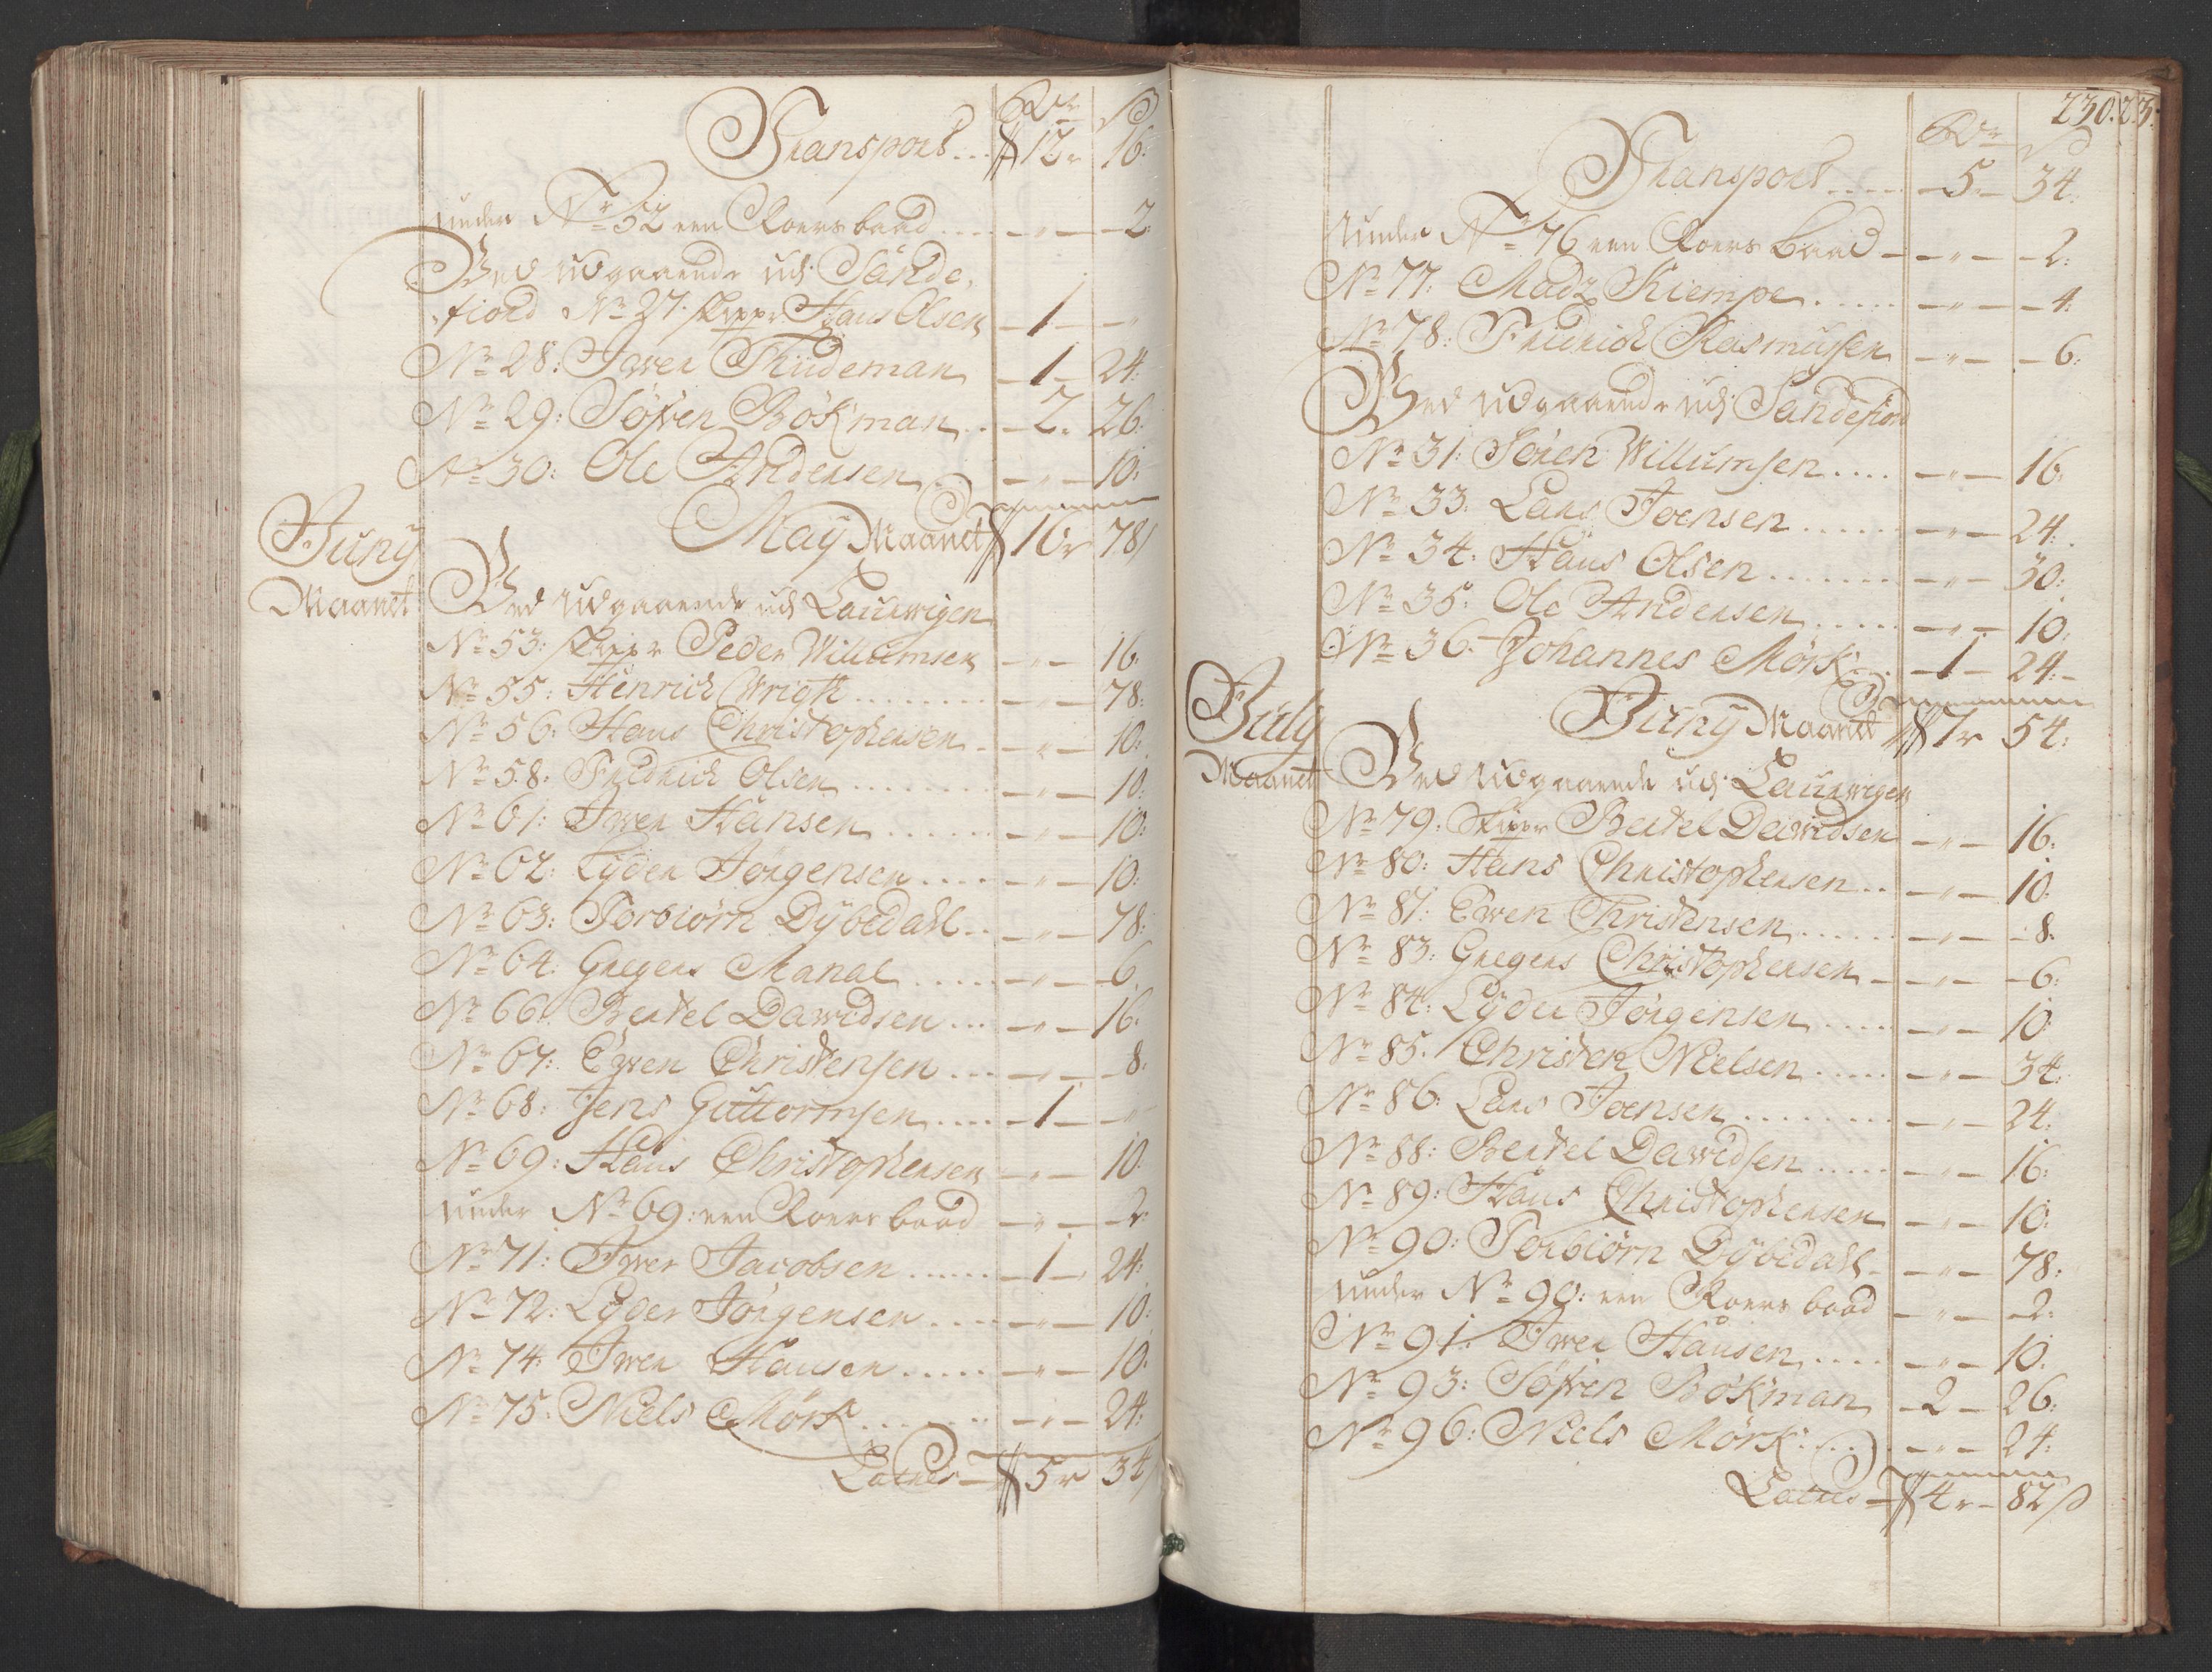 Rdr ß
Transport... 12 r 16:
under Nr 52 een Roers baad.... - " - - 2:
Ved udgaaende udi Sande,
fiord Nr 27: skippr Hans Olsen - 1 - "
Nr 28: Iwer Thudeman - 1 - 24:
Nr 29: Søfren Bökman.. - 2. 26:
Nr 30: Ole Andersen. - " - 10:
May Maanet 16 r 78 ß
Juny
Maanet
Ved udgaaende udi Laurwigen
Nr 53: skippr Peder Willumsen - " - 16:
Nr 55: Hinrich Wrigh ........ - " - 78:
Nr 56: Hans Christophersen.. - " - 10:
Nr 58: Fridrich Olsen ........ - " - 10:
Nr 61: Iwer Hansen ...... - " - 10:
Nr 62: Lyder Jørgensen.... - " - 10:
Nr 63: Torbiørn Dybedahl.. - " - 78:
Nr 64: Gregers Manal ..... - " - 6.
Nr 66: Bertel Dawidsen ... - " - 16:
Nr 67: Ewen Christensen ... - " - 8:
Nr 68: Jens Guttormsen.... - 1 - "
Nr 69: Hans Christophersen - " - 10:
under Nr 69: een Roers baad - " - 2:
Nr 71: Iwer Jacobsen ...... - 1 - 24:
Nr 72: Lyder Jørgensen.... - " - 10:
Nr 74: Iwer Hansen ..... - " - 10:
Nr 75: Niels Mørk ....... - " - 24:
Latus - 5 r 34 ß
230.
Rdr ß
Transport..... - 5 - 34:
Under Nr 76 een Roers Baad - - " - - 2:
Nr 77: Madz Kiempe ..... - " - - 4:
Nr 78: Fridrich Rasmussen - " - - 6:
Ved udgaaende udi Sandefiord
Nr 31: Søren Willumsen .... - " - 16:
Nr 33: Lars Joensen ...... - " - 24:
Nr 34: Hans Olsen ....... - " - 30:
Nr 35: Ole Andersen ..... - " - 10:
Nr 36: Johannes Mørk.. - 1 - 24:
Juny Maanet 7 r 54:
July
Maanet
Ved udgaaende udi Laurwigen
Nr 79: Skippr Bertel Dawidsen - " - 16:
Nr 80: Hans Christophersen.. - " - 10:
Nr 81: Ewen Christensen ..... - " - - 8:
Nr 83: Gregers Christophersen - - " - - 6:
Nr 84: Lyder Jørgensen .... - " - 10:
Nr 85: Christen Nielsen .... - " - 34:
Nr 86: Lars Joensen ....... - " - 24:
Nr 88: Bertel Dawidsen .... - " - 16:
Nr 89: Hans Christophersen - " - 10:
Nr 90: Torbiørn Dybedahl - - " - 78:
under Nr 90: een Roers baad - " - - 2:
Nr 91: Iwer Hansen .... - " - 10:
Nr 93: Søfren Bökman - 2 - 26:
Nr 96: Niels Mørk .... - " - 24:
Latus - 4 r - 82 ß